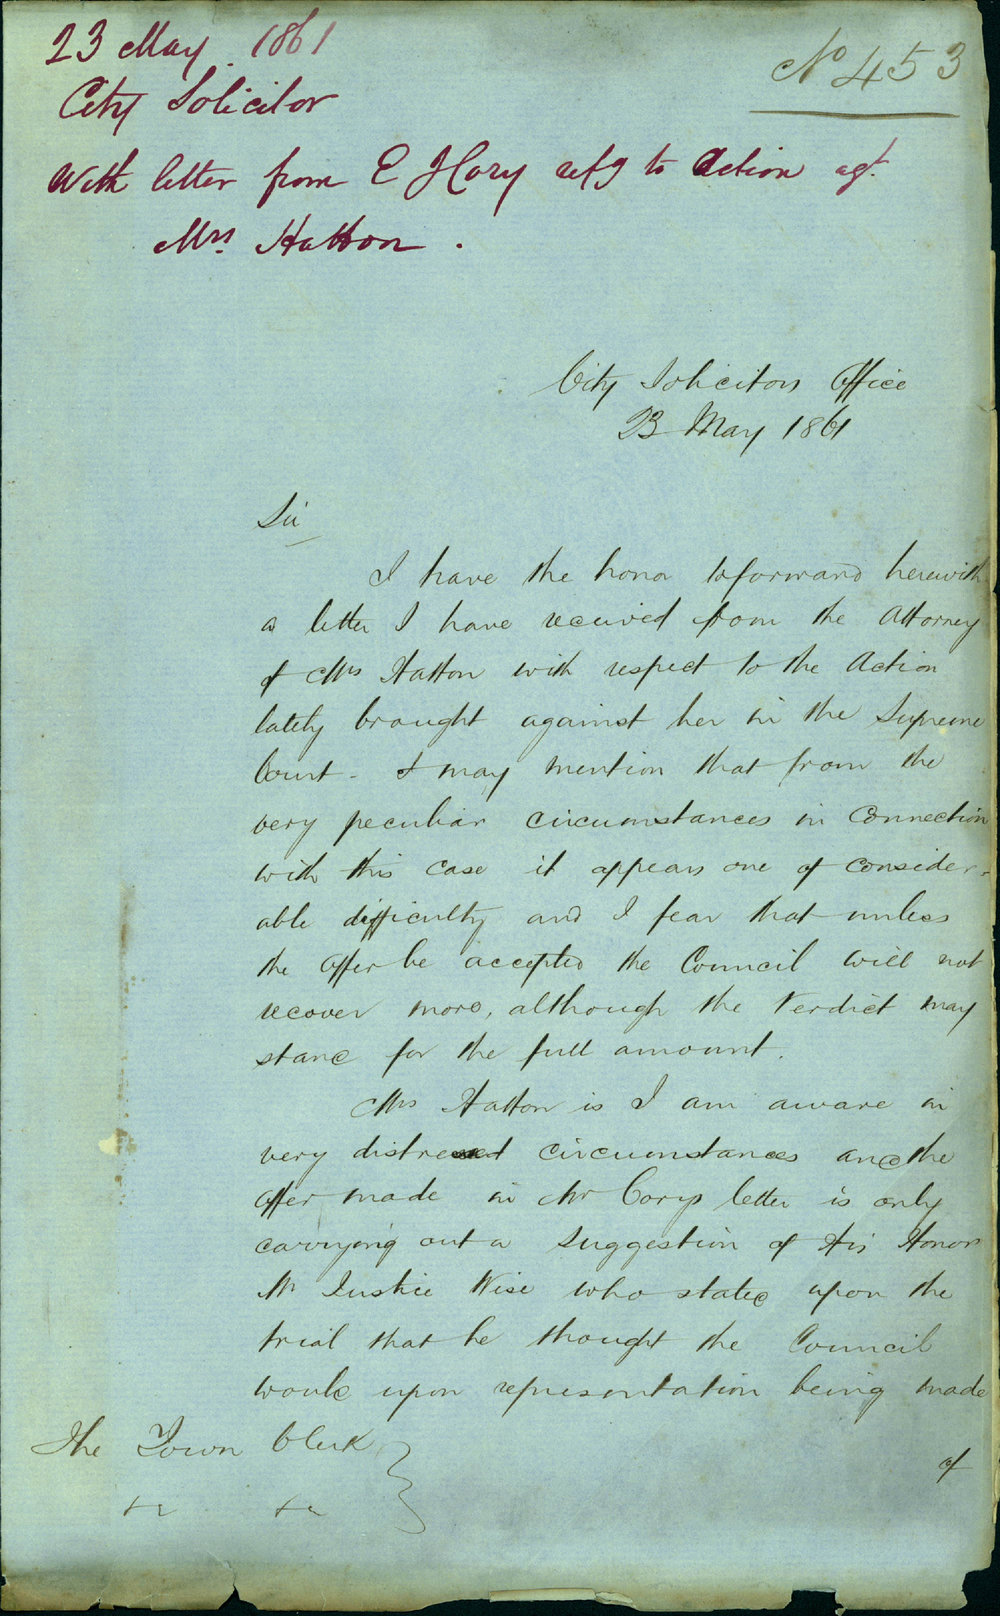 23 May 1861
No 453
City Solicitor
With letter from E J Cory refg to Action agt.
Mrs. Hatton.
City Solicitors Office
23 May 1861
Sir
I have the honor to forward herewith
a letter I have received from the Attorney
of Mrs Hatton with respect to the Action
lately brought against her in the Supreme
Court - I may mention that from the
very peculiar circumstances in connection
with this case it appears one of consider-
able difficulty and I fear that unless
the offer be accepted the Council will not
recover more, although the Verdict may
stand for the full amount.
Mrs Hatton is I am aware in
very distressed circumstances and the
offer made in Mr Corys letter is only
carrying out a suggestion of His Honor
Mr Justice Wise who stated upon the
trial that he thought the Council
would upon representation being made
The Town Clerk
of
&c &c